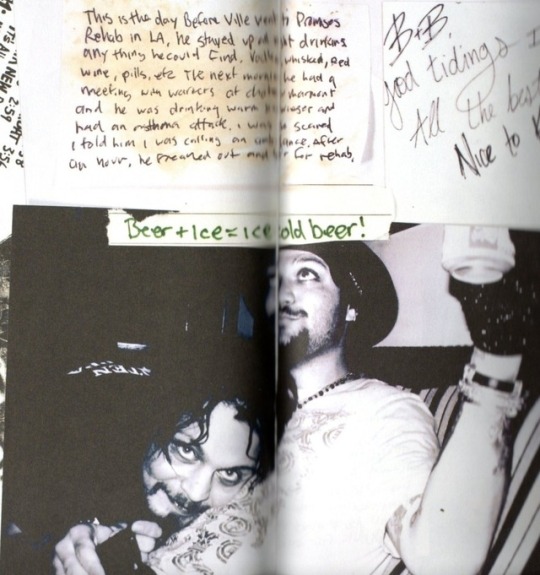 This is the day Before Ville went to Promises
Rehab in LA, he stayed up all night drinking
any thing he could Find, Vodka, whiskey, Red
wine, pills, etc The next morning he had a
meeting with warners at chateau Marmont
and he was drinking warm
had an asthma attack. I was so scared
I told him I was calling an ambulance. After
an hour, he Freaked out and for rehab.
B+B,
good tidings
All the best
Nice to
Beer + Ice = Ice cold beer!